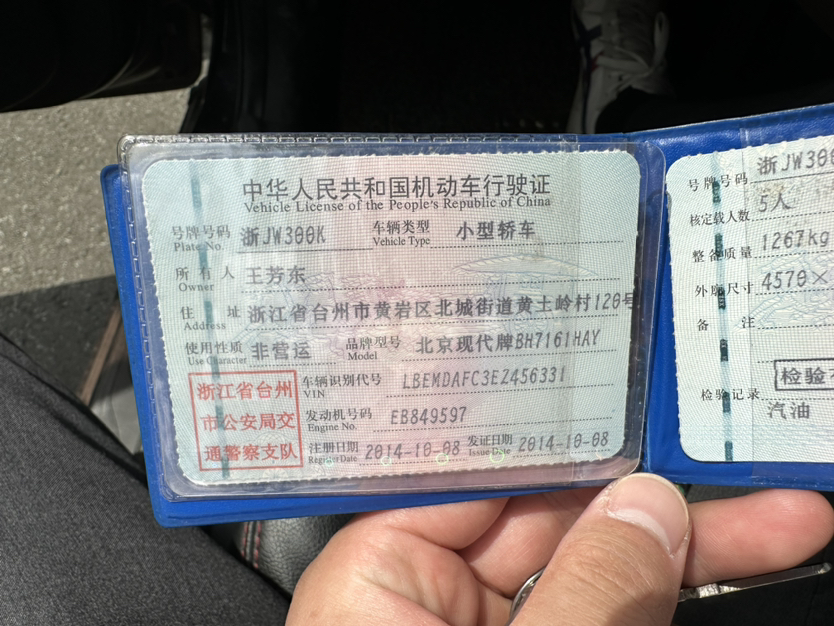 中华人民共和国机动车行驶证
Vehicle License of the People's Republic of China
号牌号码 浙JW300K 车辆类型 小型轿车
Plate No. Vehicle Type
所有人 王芳东
Owner
住址 浙江省台州市黄岩区北城街道黄土岭村120号
Address
使用性质 非营运 品牌型号 北京现代牌BH7161HAY
Use Character Model
浙江省台州
市公安局交
通警察支队
车辆识别代号 LBEMDAFC3EZ456331
VIN
发动机号码 EB849597
Engine No.
注册日期 2014-10-08 发证日期 2014-10-08
Register Date Issue Date
号牌号码 浙JW300
核定载人数 5人
整备质量 1267kg
外廓尺寸 4570×
备注
检验
检验记录
汽油